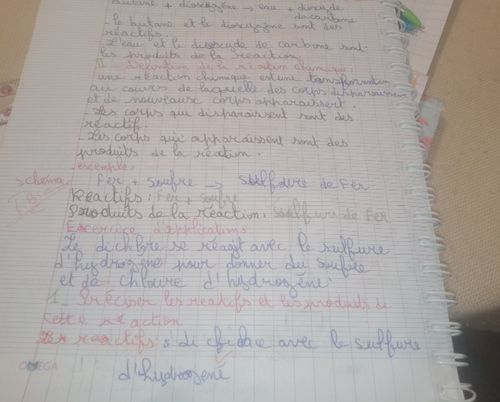 butane + dioxygène → eau + dioxyde
de carbone
- le butane et le dioxygène sont des
réactifs.
- L'eau et le dioxyde de carbone sont
les produits de la réaction.
II - Définition de la réaction chimique:
une réaction chimique est une transformation
au cours de laquelle des corps disparaissent
et de nouveause corps apparaissent.
- Les corps qui disparaissent sont des
réactif.
- Les corps qui apparaissent sont des
produits de la réation.
- exemple:
Schéma
Fer + Soufre → Sulfure de Fer
Réactifs: Fer + Soufre
Produits de la réaction: Sulfure de Fer
Exercice d'applications
Le dichlore se réagit avec le sulfure
d'hydrogène pour donner du soufre
et de chloure d'hydrogène.
1 - Préciser les reatifs et les produits de
cette réaction
Les reactifs:
avec le sulfure
d'hydrogène
OMEGA